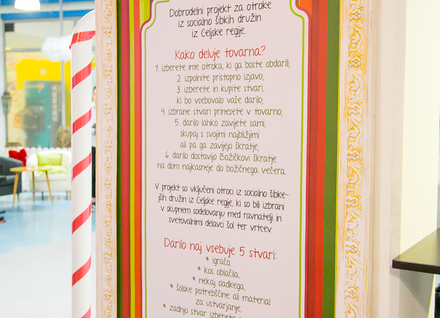 Dobrodelni projekt za otroke
iz socialno šibkih družin
iz Celjske regije.
Kako deluje tovarna?
1. izberete ime otroka, ki ga boste obdarili,
2. izpolnite pristopno izjavo,
3. izberete in kupite stvari,
ki bo vsebovalo vaše darilo,
4. izbrane stvari prinesete v tovarno,
5. darilo lahko zavijete sami,
skupaj s svojimi najbližjimi
ali pa ga zavijejo škratje,
6. darilo dostavijo Božičkovi škratje
na dom najkasneje do božičnega večera.
V projekt so vključeni otroci iz socialno šibke-
jših družin iz Celjske regije, ki so bili izbrani
v skupnem sodelovanju med ravnatelji in
svetovalnimi delavci šol ter vrtcev.
Darilo naj vsebuje 5 stvari:
* igračo,
* kos oblačila,
* nekaj sladkega,
* šolske potrebščine ali material
za ustvarjanje,
* zadnjo stvar izberete